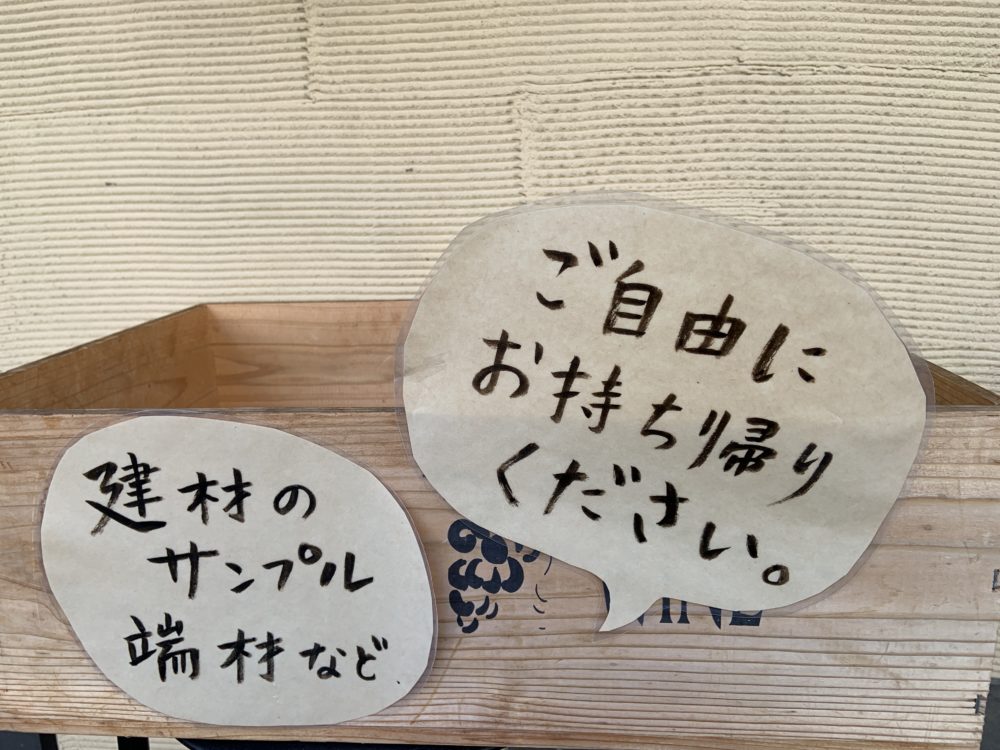 ご自由に
お持ち帰り
ください。
建材の
サンプル
端材など